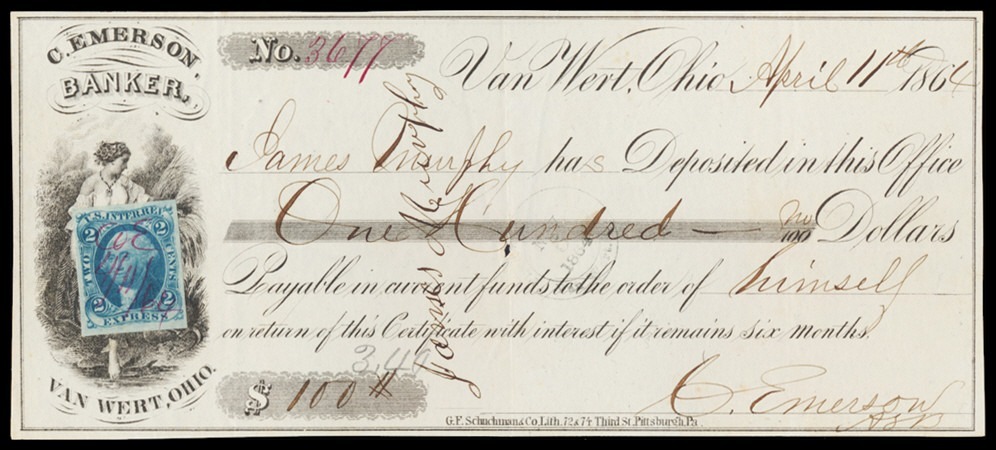 C. EMERSON,
BANKER,
No. 3677
Van Wert, Ohio April 11th 1864
James Murphy has Deposited in this Office
One Hundred — no/100 Dollars
Payable in current funds to the order of himself
on return of this Certificate with interest if it remains six months.
$ 100
3,49
C. Emerson
VAN WERT, OHIO.
G.F. Schuchman & Co, Lith. 72 & 74 Third St. Pittsburgh, Pa.
James Murphy
U.S. INTER REV
2 2
TWO CENTS
2 2
EXPRESS
1864